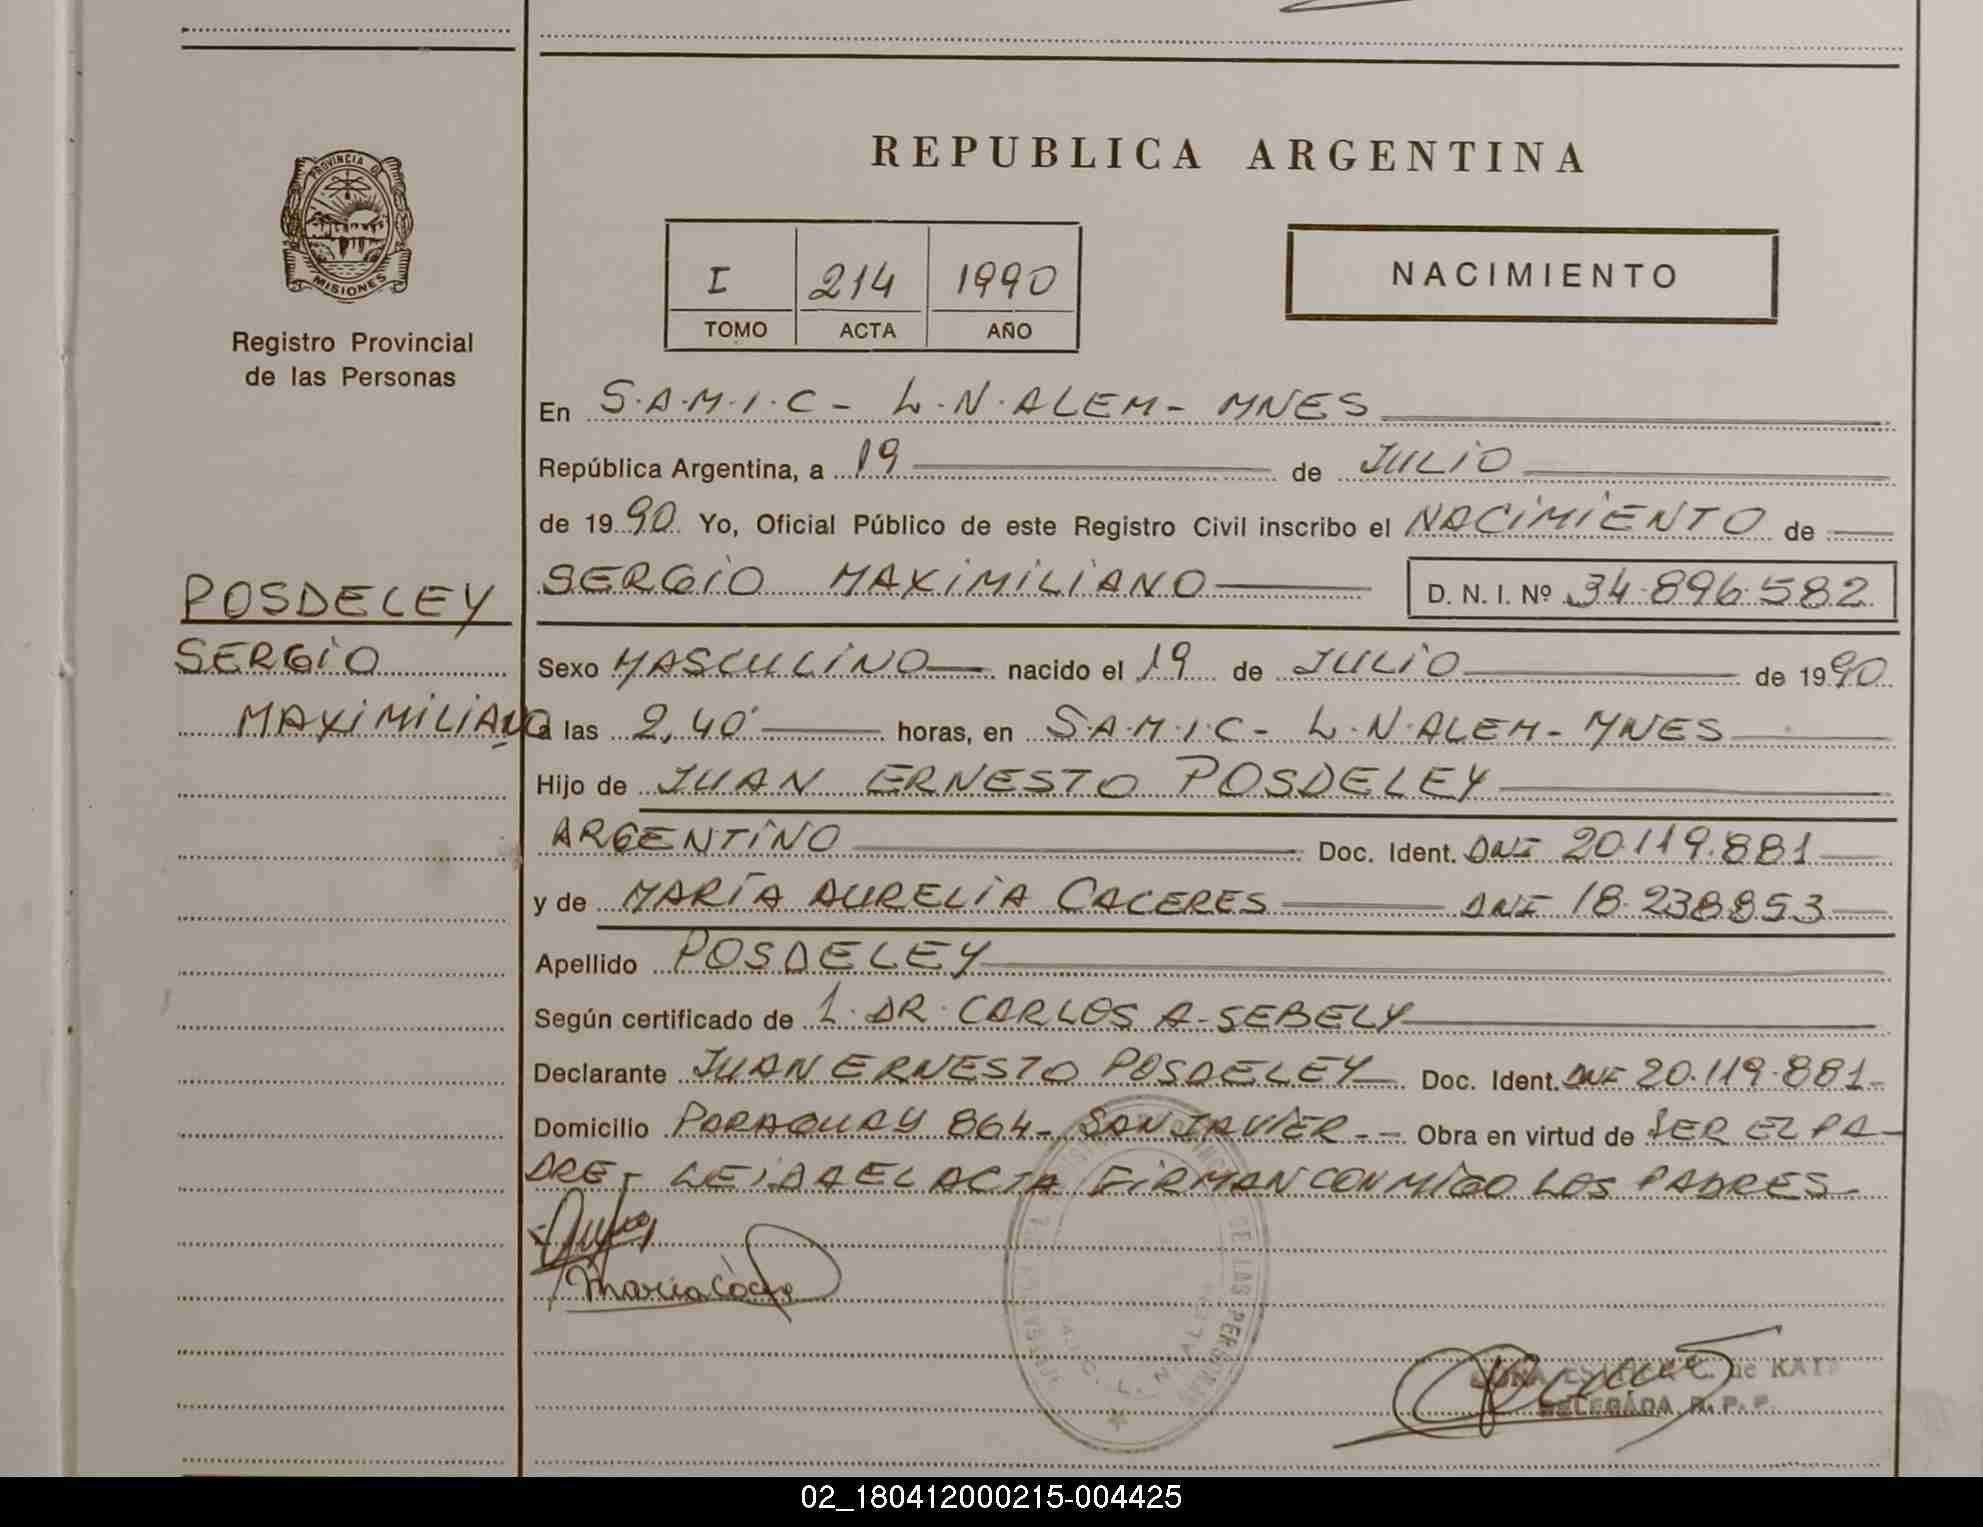 REPUBLICA ARGENTINA
PROVINCIA DE
MISIONES
Registro Provincial
de las Personas
I 214 1990
TOMO ACTA AÑO
NACIMIENTO
En S.A.M.I.C - L.N.ALEM - MNES
República Argentina, a 19 de JULIO
de 1990 Yo, Oficial Público de este Registro Civil inscribo el NACIMIENTO de
SERGIO MAXIMILIANO D. N. I. Nº 34.896.582
POSDELEY
SERGIO
MAXIMILIANO
Sexo MASCULINO nacido el 19 de JULIO de 1990
a las 2,40' horas, en S.A.M.I.C - L.N.ALEM - MNES
Hijo de JUAN ERNESTO POSDELEY
ARGENTINO Doc. Ident. DNI 20.119.881
y de MARÍA AURELIA CACERES DNI 18.238853
Apellido POSDELEY
Según certificado de 1. DR. CARLOS A. SEBELY
Declarante JUAN ERNESTO POSDELEY Doc. Ident. DNI 20.119.881-
Domicilio PARAGUAY 864 - SAN JAVIER - - Obra en virtud de SER EL PA-
DRE - LEIDA EL ACTA FIRMAN CONMIGO LOS PADRES
DE LAS PERSONAS
L. N. ALEM
C. de KATZ
DELEGADA R. P. P.
02_180412000215-004425